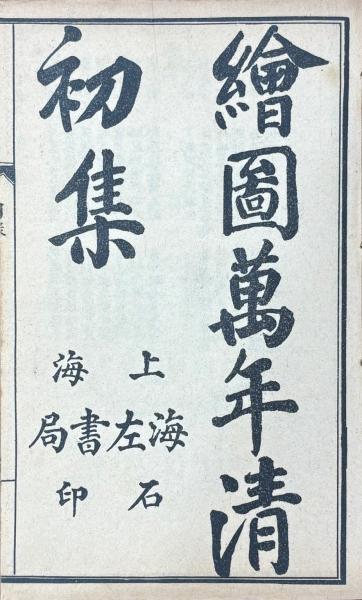 繪圖萬年清
初集
上海
海左書局
石印